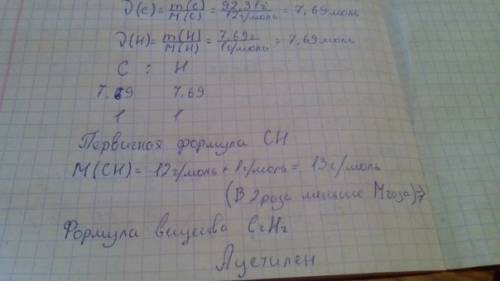 ν(C) = m(C)/M(C) = 92,31г/12г/моль = 7,69 моль
ν(H) = m(H)/M(H) = 7,69г/1г/моль = 7,69 моль
C : H
7,69 7,69
1 1
Первичная формула CH
M(CH) = 12г/моль + 1г/моль = 13г/моль
(В 2 раза меньше Mгаза)⇒
Формула вещества C₂H₂
Ацетилен